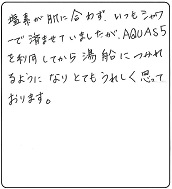 塩素が肌に合わず、いつもシャワ
ーで済ませていましたが、AQUAS5
を利用してから湯船につかれ
るようになりとてもうれしく思って
おります。